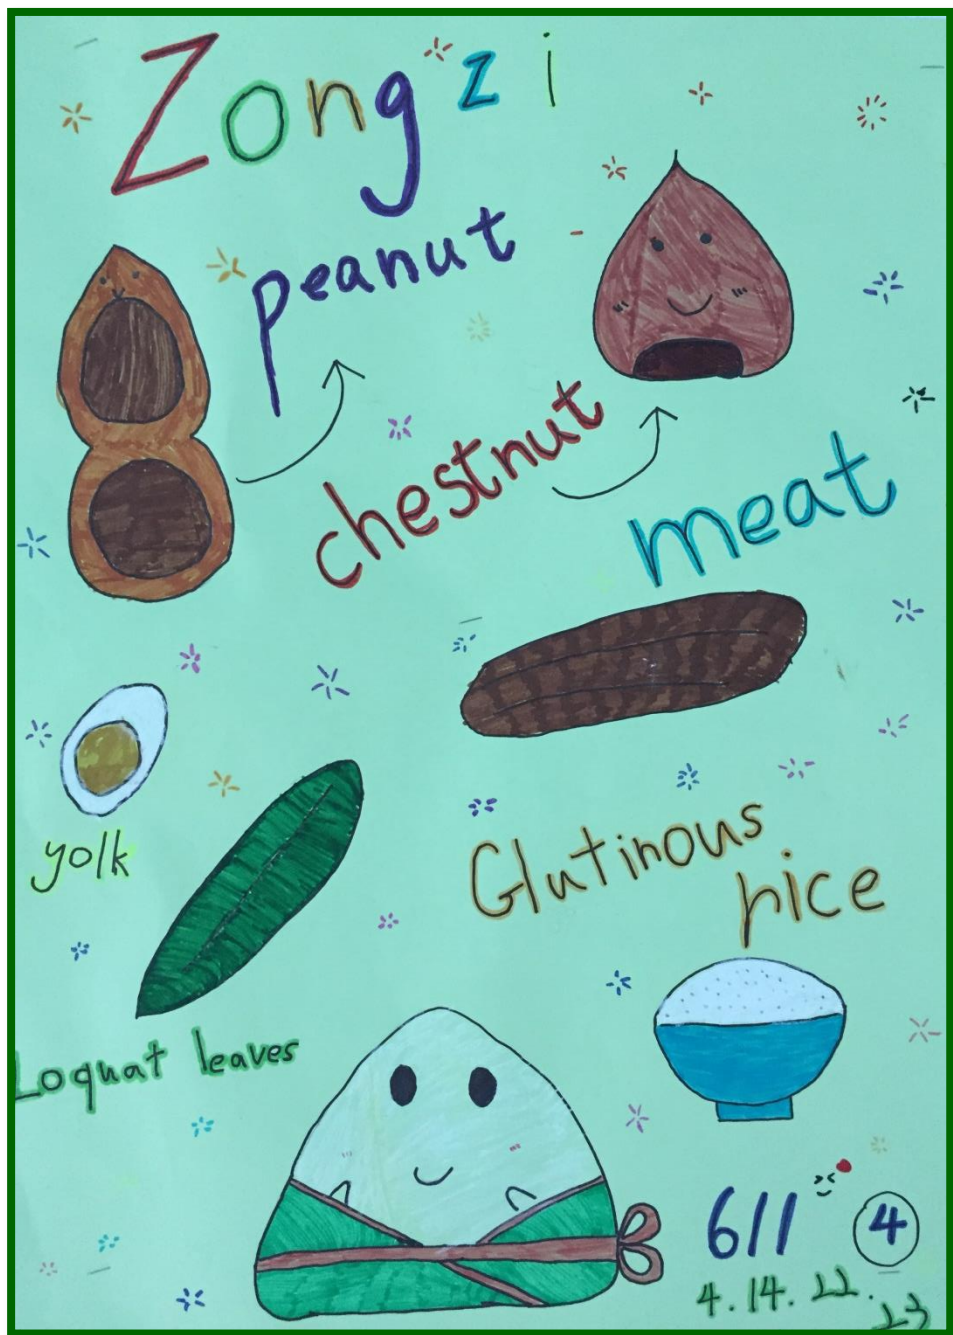 Zongzi
peanut
chestnut
meat
yolk
Glutinous
rice
Loquat leaves
611 4
4.14.22.
23